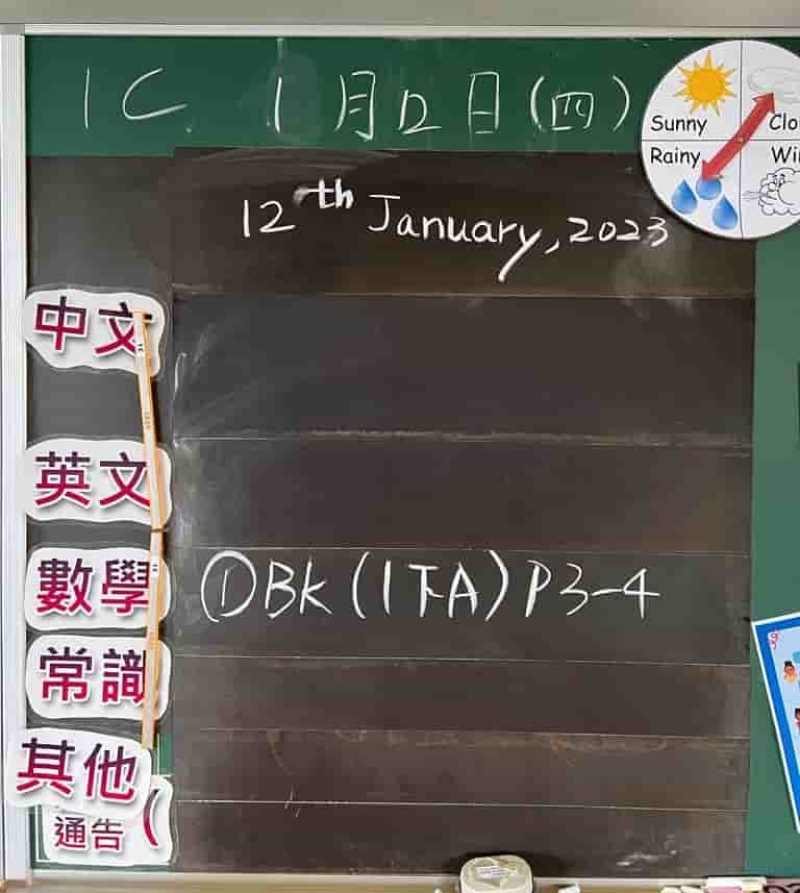 1C 1月12日(四)
Sunny
Rainy
12th January, 2023
中文
英文
數學 ①Bk(1下A)P3-4
常識
其他
通告(